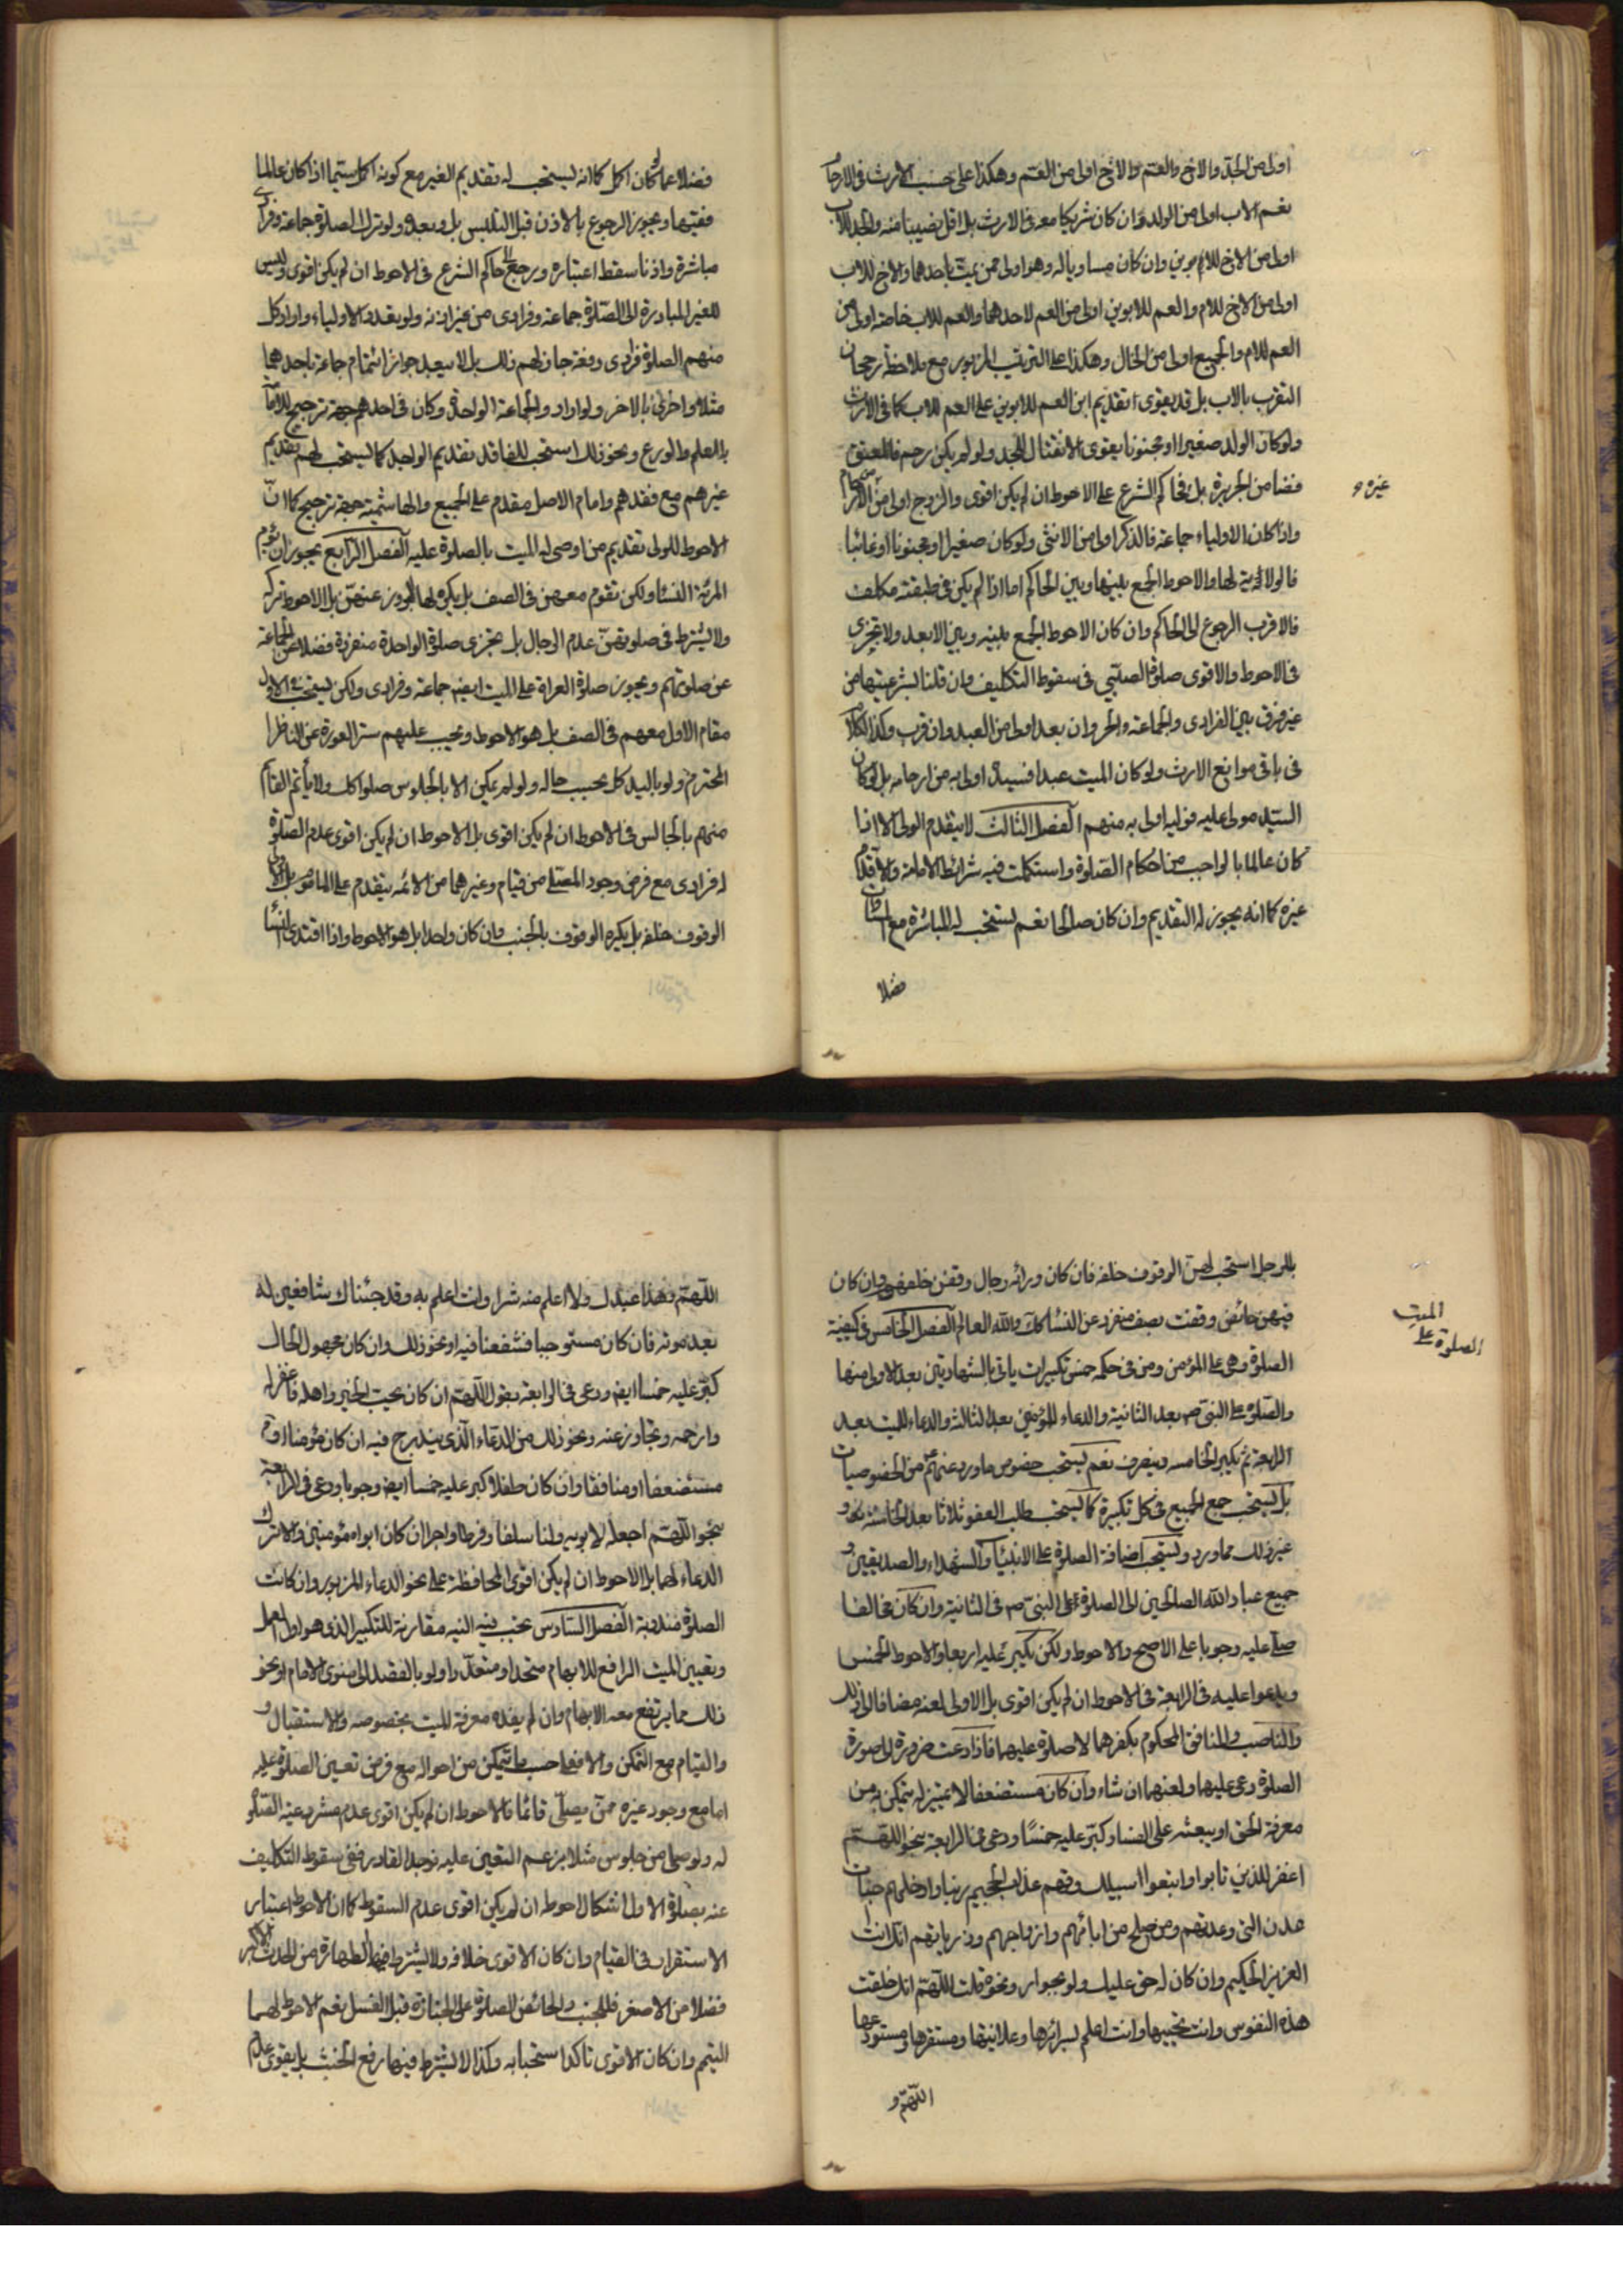 اولى من الجد والاخ والعم والاخ اولى من العم وهكذا على حسب الارث فى الارحام
نعم الاب اولى من الولد وان كان شريكا معه فى الارث بل اقل نصيبا منه والجد للاب
اولى من الاخ للابوين وان كان مساويا له وهو اولى ممن يمت باحدهما والاخ للاب
اولى من الاخ للام والعم للابوين اولى من العم لاحدهما والعم للاب خاصة اولى من
العم للام والجميع اولى من الخال وهكذا على الترتيب المزبور مع ملاحظة رجحان
التقرب بالاب بل قد يقوى تقديم ابن العم للابوين على العم للاب كما فى الارث
ولو كان الولد صغيرا او مجنونا يقوى الانتقال للجد ولو لم يكن رحم فالمعتق
فضامن الجريرة بل فحاكم الشرع على الاحوط ان لم يكن اقوى والزوج اولى من الارحام
غيره و
واذا كان الاولياء جماعة فالذكر اولى من الانثى ولو كان صغيرا او مجنونا او غائبا
فالولاية لها والاحوط الجمع بينها وبين الحاكم اما اذا لم يكن فى طبقته مكلف
فالاقرب الرجوع الى الحاكم وان كان الاحوط الجمع بينه وبين الابعد ولا تجزى
فى الاحوط والاقوى صلوة الصبى فى سقوط التكليف وان قلنا بشرعيتها من
غير فرق بين الفرادى والجماعة والحر وان بعد اولى من العبد وان قرب وكذا الكلام
فى باقى موانع الارث ولو كان الميت عبدا فسيده اولى به من ارحامه بل لو كان
السيد مولى عليه فوليه اولى به منهم الفصل الثالث لا يتقدم الولى الا اذا
كان عالما بالواجب من احكام الصلوة واستكملت فيه شرائط الامامة والا قدم
غيره كما انه يجوز له التقديم وان كان صالحا نعم يستحب له المباشرة مع
فضلا
فضلا عما لو كان اكمل كما انه يستحب له تقديم الغير مع كونه اكمل سيما اذا كان عالما
فقيها ويجوز الرجوع بالاذن قبل التلبس بل وبعده ولو ترك الصلوة جماعة وفرادى
مباشرة واذنا سقط اعتباره ورجع الى حاكم الشرع فى الاحوط ان لم يكن اقوى وليس
للغير المبادرة الى الصلوة جماعة وفرادى من غير اذنه ولو تعدد الاولياء واراد كل
منهم الصلوة فرادى دفعة جاز لهم ذلك بل لا يبعد جواز ائتمام جماعة باحدهما
مثلا واخرى بالاخر ولو ارادوا الجماعة الواحدة وكان فى احدهم جهة ترجيح للامامة
بالعلم والورع ونحو ذلك استحب للفاقد تقديم الواجد كما يستحب لهم تقديم
غيرهم مع فقدهم وامام الاصل مقدم على الجميع والهاشمية جهة ترجيح كما ان
الاحوط للولى تقديم من اوصى له الميت بالصلوة عليه الفصل الرابع يجوز ان تؤم
المرئة النساء ولكن تقوم معهن فى الصف بل يكره لها البروز عنهن بل الاحوط تركه
ولا يشترط فى صلوتهن عدم الرجال بل تجزى صلوة الواحدة منفردة فضلا عن الجماعة
عن صلوتهم ويجوز صلوة العراة على الميت ايضا جماعة وفرادى ولكن يستحب
مقام الاول معهم فى الصف بل هو الاحوط ويجب عليهم ستر العورة عن الناظر
المحترم ولو باليد كل بحسب حاله ولو لم يمكن الا بالجلوس صلوا كك ولا يأتم القائم
منهم بالجالس فى الاحوط ان لم يكن اقوى بل الاحوط ان لم يكن اقوى عدم الصلوة
له فرادى مع فرض وجود المصلى من قيام وغيرهما من الائمة يتقدم على الماموم
الوقوف خلفه بل يكره الوقوف بالجنب وان كان واحدا بل هو الاحوط واذا اقتدى النساء
بالرجل استحب لهن الوقوف خلفه فان كان ورائه رجال وقفن خلفهم وان كان
فيهن حائض وقفت بصف منفرد عن النساء كك والله العالم الفصل الخامس فى كيفية
الميت
الصلوة على
الصلوة وهى على المؤمن ومن فى حكمه خمس تكبيرات ياتى بالشهادتين بعد الاولى منها
والصلوة على النبى ص بعد الثانية والدعاء للمؤمنين بعد الثالثة والدعاء للميت بعد
الرابعة ثم يكبر الخامسة وينصرف نعم يستحب خصوص ما ورد عنهم ع من الخصوصيات
بل يستحب جمع الجميع فى كل تكبيرة كما يستحب طلب العفو ثلاثا بعد الخامسة
غير ذلك مما ورد ويستحب اضافة الصلوة على الانبياء والشهداء والصديقين و
جميع عباد الله الصالحين الى الصلوة على النبى ص فى الثانية وان كان مخالفا
صلى عليه وجوبا على الاصح والاحوط ولكن يكبر عليه اربعا والاحوط الخمس
ويدعوا عليه فى الرابعة فى الاحوط ان لم يكن اقوى بل الاولى لعنه مضافا الى ذلك
والناصب والمنافق المحكوم بكفرهما لا صلوة عليهما فاذا دعت ضرورة الى صورة
الصلوة دعى عليهما ولعنهما ان شاء وان كان مستضعفا لا تمييز له يتمكن به من
معرفة الحق او يبعثه على الفساد كبر عليه خمسا ودعى فى الرابعة بنحو اللهم
اغفر للذين تابوا واتبعوا سبيلك وقهم عذاب الجحيم ربنا وادخلهم جنات
عدن التى وعدتهم ومن صلح من ابائهم وازواجهم وذرياتهم انك انت
العزيز الحكيم وان كان له حق عليك ولو بجوار ونحوه قلت اللهم انك خلقت
هذه النفوس وانت تحييها وانت اعلم بسرائرها وعلانيتها ومستقرها ومستودعها
اللهم و
اللهم وهذا عبدك ولا اعلم منه شرا وانت اعلم به وقد جئناك شافعين له
بعد موته فان كان مستوجبا فشفعنا فيه او نحو ذلك وان كان مجهول الحال
كبر عليه خمسا ايضا ودعى فى الرابعة بقول اللهم ان كان يحب الخير واهله فاغفر له
وارحمه وتجاوز عنه ونحو ذلك من الدعاء الذى يندرج فيه ان كان مؤمنا او
مستضعفا او منافقا وان كان طفلا كبر عليه خمسا ايضا وجوبا ودعى فى الرابعة
بنحو اللهم اجعله لابويه ولنا سلفا وفرطا واجرا ان كان ابواه مؤمنين والا ترك
الدعاء لهما بل الاحوط ان لم يكن اقوى المحافظة على نحو الدعاء المزبور وان كانت
الصلوة مندوبة الفصل السادس تجب فيه النية مقارنة للتكبير الذى هو اول العمل
وتعيين الميت الرافع للابهام متحدا او متعددا ولو بالقصد الى منوى الامام او نحو
ذلك مما يرتفع معه الابهام وان لم يفده معرفة الميت بخصوصه والاستقبال و
والقيام مع التمكن والا فعلى حسب ما يتمكن من احواله مع فرض تعيين الصلوة عليه
اما مع وجود غيره ممن يصلى قائما فالاحوط ان لم يكن اقوى عدم مشروعية الصلوة
له ولو صلى من جلوس مثلا بزعم التعين عليه فوجد القادر ففى سقوط التكليف
عنه بصلوة الاول اشكال احوطه ان لم يكن اقوى عدم السقوط كما ان الاحوط اعتبار
الاستقرار فى القيام وان كان الاقوى خلافه ولا يشترط فيها الطهارة من الحدث الاكبر
فضلا من الاصغر فللجنب والحائض الصلوة على الجنازة قبل الغسل نعم الاحوط لهما
التيمم وان كان الاقوى تاكد استحبابه وكذا لا يشترط فيها رفع الخبث بل يقوى عدم